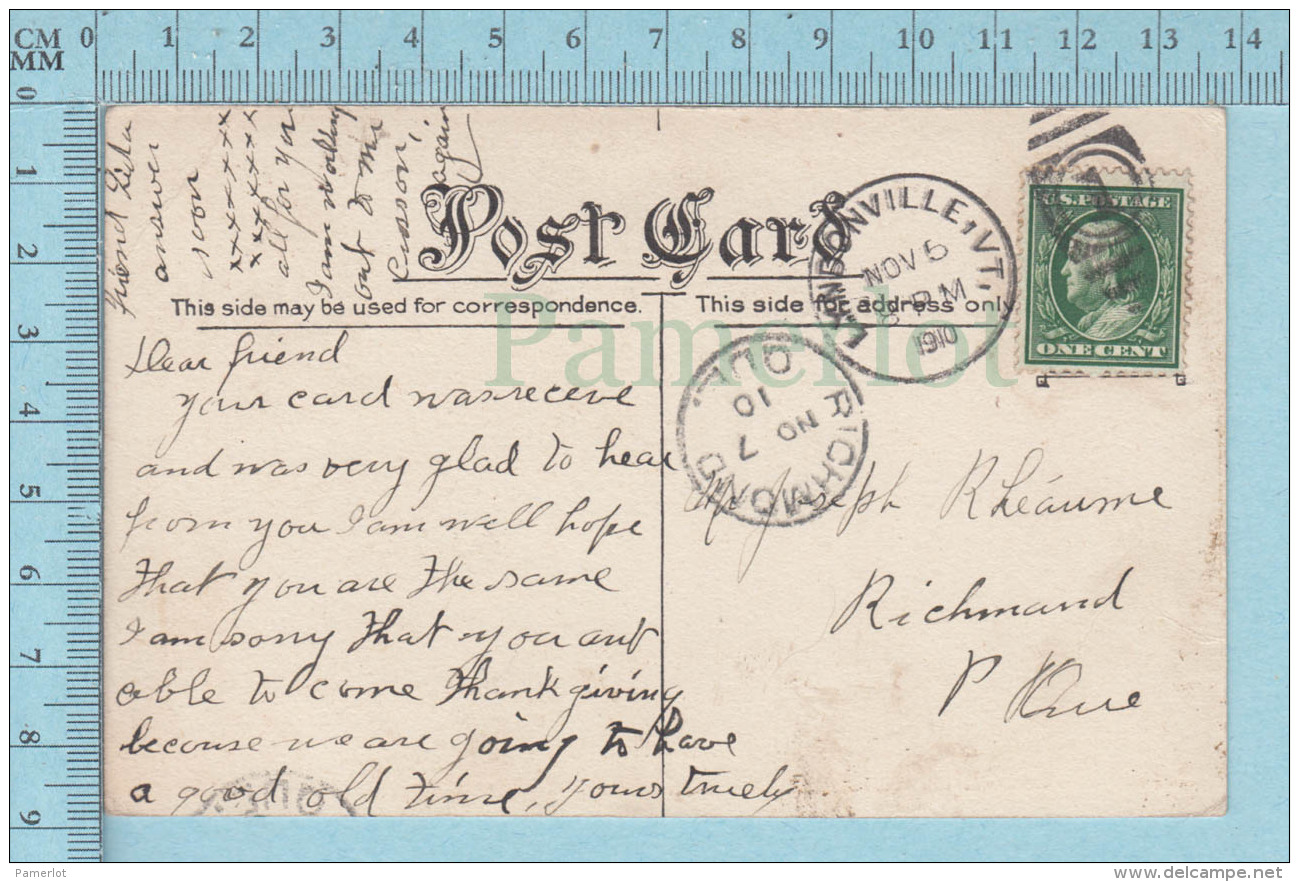 CM 0 1 2 3 4 5 6 7 8 9 10 11 12 13 14
MM
0 1 2 3 4 5 6 7 8 9
Post Card
This side may be used for correspondence.
This side for address only
VILLE, VT.
NOV 5
PM
1910
U.S. POSTAGE
ONE CENT
RICHMOND QUE.
NO 7
10
Pamerlot
Dear friend
your card was receve
and was very glad to hear
from you I am well hope
that you are the same
I am sorry that you ant
able to come thankgiving
because we are going to have
a good old time, yours truely
friend
answer
soon
xxxxxxx
xxxxxxx
all for you
I am working
out to Mr
again
Mr Joseph Rhéaume
Richmand
P Que
Pamerlot
delcampe.net